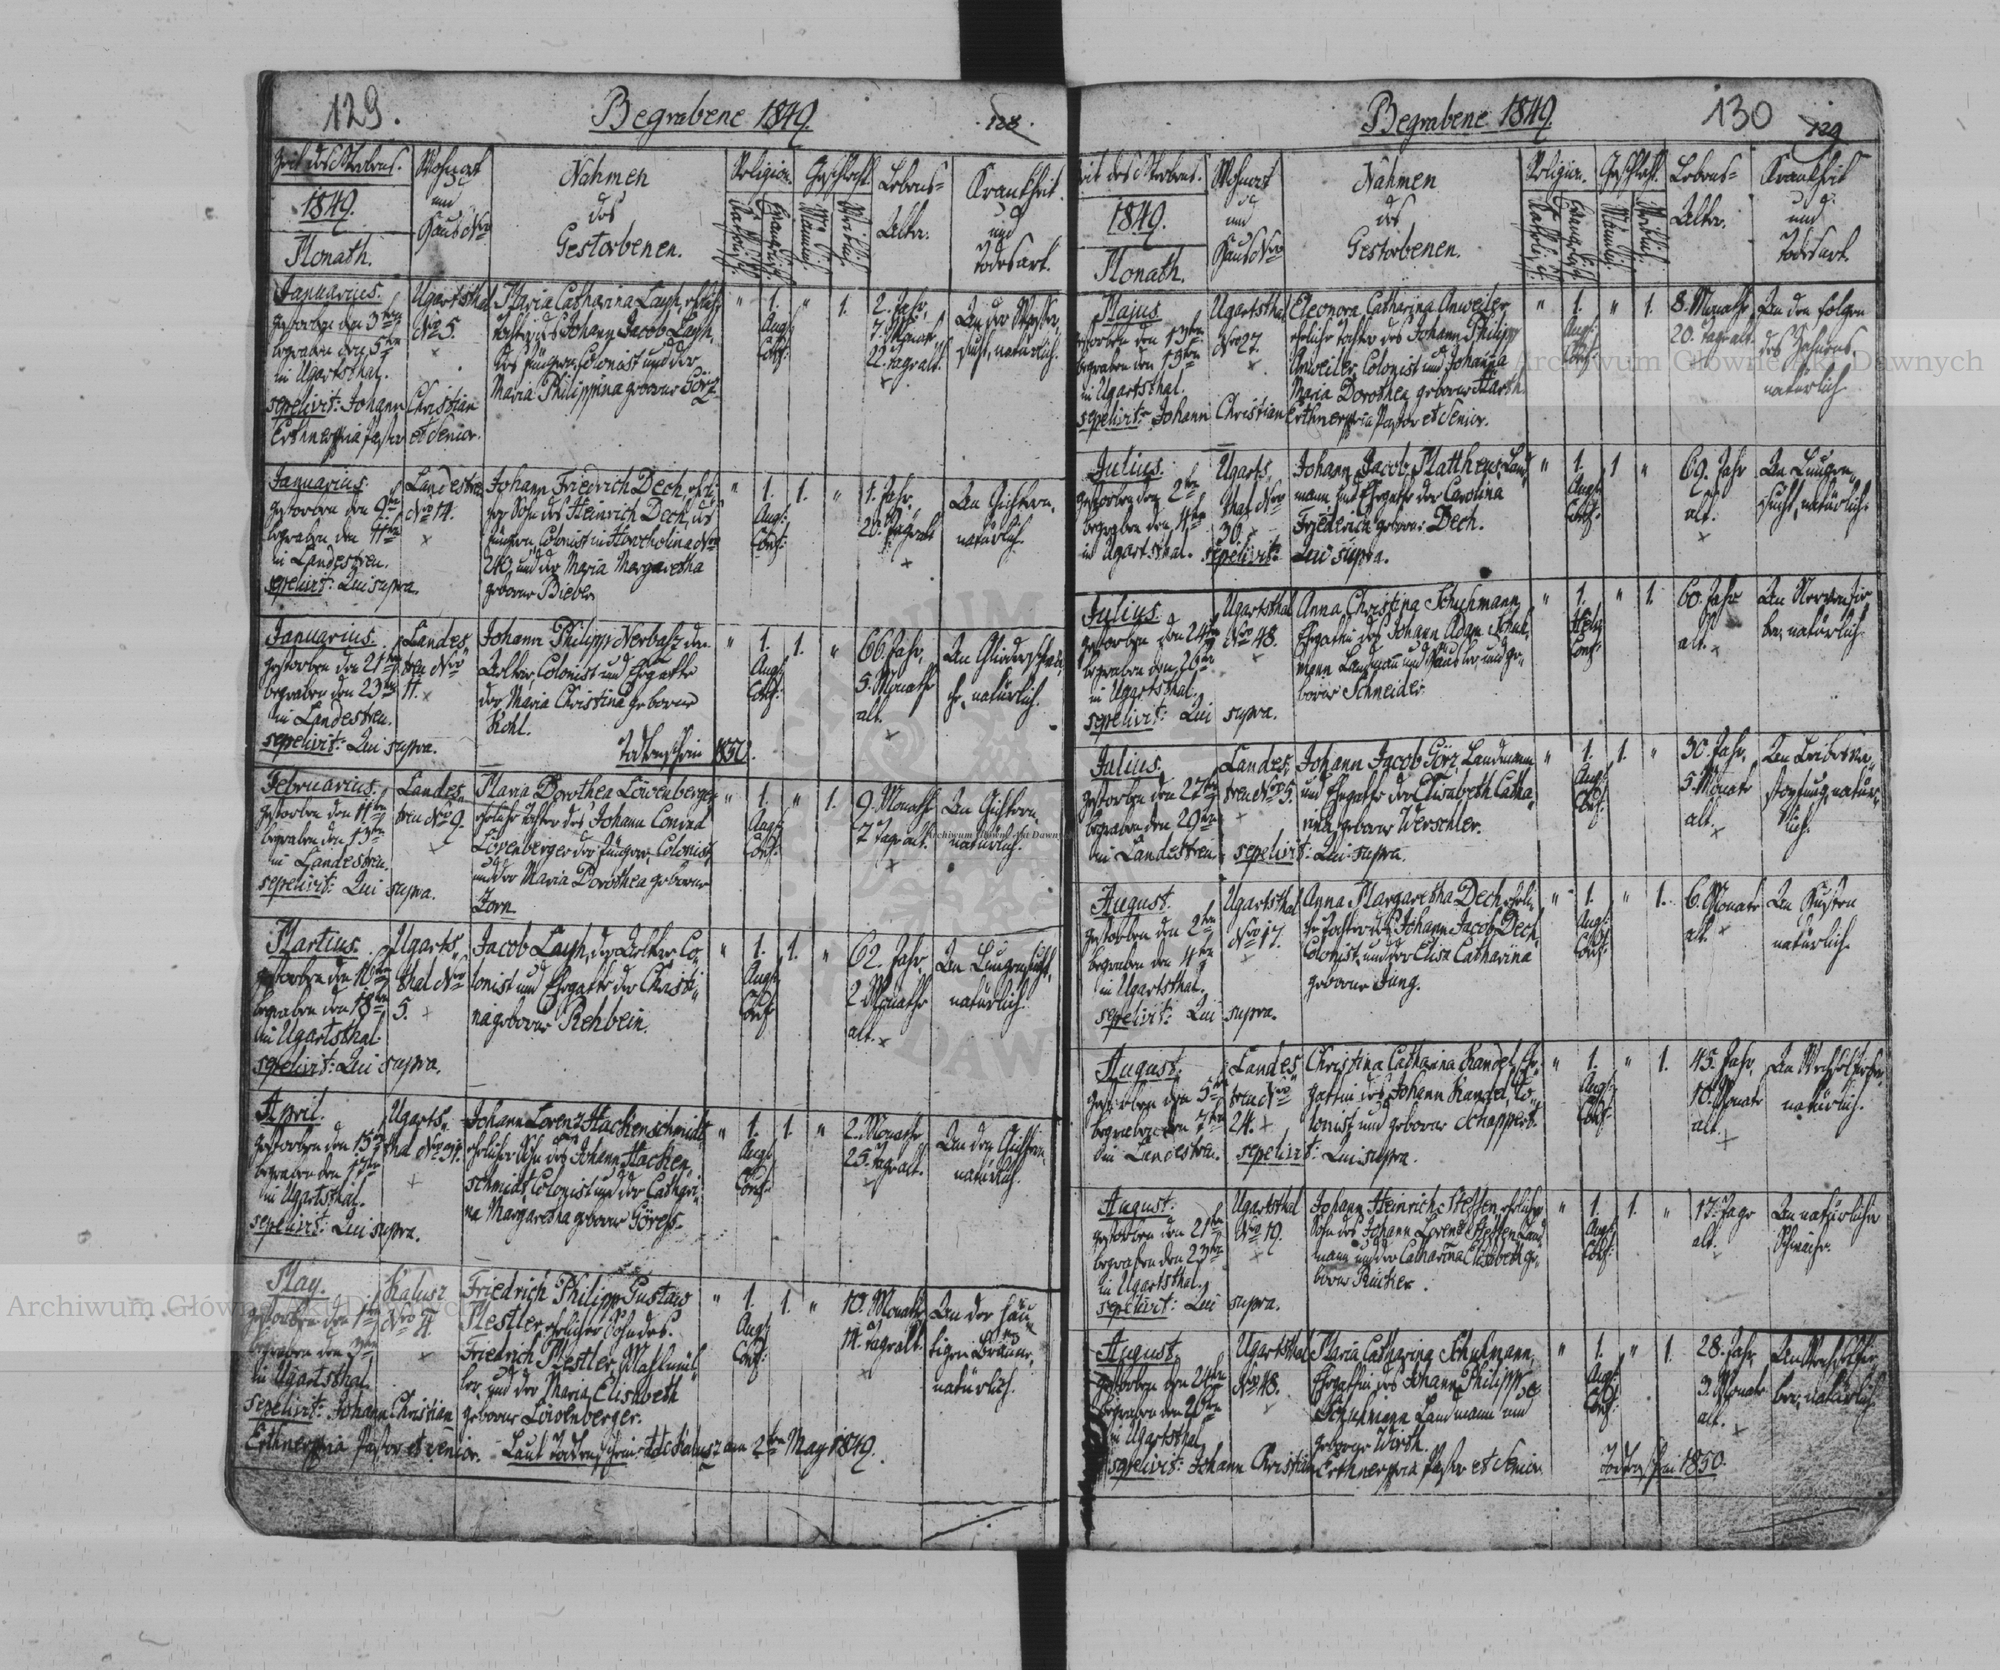 129.
Begrabene 1849.
128.
Zeit des Sterbens.
1849.
Monath.
Wohnort
und
Haus Nro
Nahmen
des
Gestorbenen.
Religion.
Katholisch
Evangelisch
Geschlecht.
Männlich
Weiblich
Lebens-
Alter.
Krankheit
und
Todesart.
Januarius.
gestorben den 3ten
begraben den 5ten
in Ugartsthal.
sepelivit: Johann Christian
Erthner pia Pastor et Senior.
Ugartsthal
Nro 5.
Maria Catharina Layh, eheliche
Tochter des Johann Jacob Layh,
des jüngern, Colonist und der
Maria Philippina geborne Görz.
" 1. " 1.
Augs:
Conf:
2. Jahr,
7. Monat,
22. Tage alt.
An der Wasser-
sucht, natürlich.
Januarius.
gestorben den 9ten
begraben den 11ten
in Landestreu.
sepelivit: Qui supra.
Landestreu
Nro 14.
Johann Friedrich Dech, eheli-
cher Sohn des Heinrich Dech, des
jüngern, Colonist in
und der Maria Margaretha
geborne Bieber.
" 1. 1. "
Augs:
Conf:
1. Jahr,
Tage alt
An Gichtern,
natürlich.
Januarius.
gestorben den 21ten
begraben den 23ten
in Landestreu.
sepelivit: Qui supra.
Landes-
treu Nro
11.
Johann Philipp Nerbass der
Aeltere, Colonist und Ehegatte
der Maria Christina geborne
Kohl.
Todtenschein 1850.
" 1. 1. "
Augs:
Conf:
66. Jahr,
5. Monathe
alt.
natürlich.
Februarius.
gestorben den 11ten
begraben den 13ten
in Landestreu.
sepelivit: Qui supra.
Landes-
treu Nro 9.
Maria Dorothea Löwenberger
eheliche Tochter des Johann Conrad
Löwenberger der Jüngere, Colonist,
und der Maria Dorothea geborne
Zorn.
" 1. " 1.
Augs:
Conf:
9. Monath
7 Tage alt.
An Gichtern,
natürlich.
Martius.
gestorben den 16ten
begraben den 18ten
in Ugartsthal.
sepelivit: Qui supra.
Ugarts-
thal Nro
5.
Jacob Layh, der Aeltere Co-
lonist und Ehegatte der Christi-
na geborne Rehbein.
" 1. 1. "
Augs:
Conf:
62. Jahr,
2 Monathe
alt.
An Lungensucht,
natürlich.
April.
gestorben den 15ten
begraben den 17ten
in Ugartsthal.
sepelivit: Qui supra.
Ugarts-
thal Nro 31.
Johann Lorenz Hachenschmidt
ehelicher Sohn des Johann Hachen-
schmidt, Colonist und der Cathari-
na Margaretha geborne Göress.
" 1. 1. "
Augs:
Conf:
2. Monathe
25. Tage alt.
An den Gichtern,
natürlich.
May.
gestorben den 1ten
begraben den 3ten
in Ugartsthal.
sepelivit: Johann Christian
Erthner pia Pastor et Senior.
Kalusz
Nro 4.
Friedrich Philipp Gustav
Mestler ehelicher Sohn des
Friedrich Mestler, Mahlmül-
ler, und der Maria Elisabeth
geborne Löwenberger.
Laut Todtenschein ddo Kalusz am 2ten May 1849.
" 1. 1. "
Augs:
Conf:
10. Monath
14. Tage alt.
An der häu-
tigen Bräune,
natürlich.
Begrabene 1849.
130
129
Zeit des Sterbens.
1849.
Monath.
Wohnort
und
Haus Nro
Nahmen
des
Gestorbenen.
Religion.
Katholisch
Evangelisch
Geschlecht.
Männlich
Weiblich
Lebens-
Alter.
Krankheit
und
Todesart.
Majus
gestorben den 13ten
begraben den 15ten
in Ugartsthal.
sepelivit: Johann Christian Erthner pia Pastor et Senior.
Ugartsthal
Nro 27.
Eleonora Catharina Anweiler
eheliche Tochter des Johann Philipp
Anweiler, Colonist und Johanna
Maria Dorothea geborne Harth.
" 1. " 1.
Augs:
Conf:
8. Monath
20. Tage alt.
An den Folgen
des Zahnens
natürlich
Julius.
gestorben den 2ten
begraben den 4ten
in Ugartsthal. sepelivit: Qui supra.
Ugarts-
thal Nro
30.
Johann Jacob Mattheus, Land-
mann und Ehegatte der Carolina
Friederich geborne Dech.
" 1. 1 "
Augs:
Conf:
69. Jahr
alt.
An Lungen-
sucht, natürlich.
Julius.
gestorben den 24ten
begraben den 26ten
in Ugartsthal.
sepelivit: Qui supra.
Ugartsthal
Nro 48.
Anna Christina Schuhmann,
Ehegattin des Johann Adam Schuh-
mann Landmann und und ge-
borne Schneider.
" 1. " 1.
Helv:
Conf:
60. Jahr
alt.
An Nervenfie-
ber, natürlich.
Julius.
gestorben den 27ten
begraben den 29ten
in Landestreu. sepelivit: Qui supra.
Landes-
treu Nro 5.
Johann Jacob Görz, Landmann
und Ehegatte der Elisabeth Catha-
rina, geborne Werschler.
" 1. 1. "
Augs:
Conf:
30. Jahr,
5. Monate
alt.
An Leibesver-
stopfung, natür-
lich.
August.
gestorben den 2ten
begraben den 4ten
in Ugartsthal.
sepelivit: Qui supra.
Ugartsthal
Nro 17.
Anna Margaretha Dech eheli-
che Tochter des Johann Jacob Dech,
Colonist, und der Elisa Catharina
geborne Jung.
" 1. " 1.
Augs:
Conf:
6. Monate
alt.
An Husten
natürlich.
August.
gestorben den 5ten
begraben den 7ten
in Landestreu. sepelivit: Qui supra.
Landes-
treu Nro
24.
Christina Catharina Kandel, Ehe-
gattin des Johann Kandel, Co-
lonist, und geborne Schappert.
" 1. " 1.
Augs:
Conf:
45. Jahr,
10. Monate
alt.
An Wechselfieber,
natürlich.
August.
gestorben den 21ten
begraben den 23ten
in Ugartsthal.
sepelivit: Qui supra.
Ugartsthal
Nro 19.
Johann Heinrich Steffen, ehelicher
Sohn des Johann Lorenz Steffen Land-
mann und der Catharina Elisabeth ge-
borne Rücker.
" 1. 1. "
Augs:
Conf:
17. Tage
alt.
An natürlicher
Schwäche.
August.
gestorben den 24ten
begraben den 26ten
in Ugartsthal
sepelivit: Johann Christian Erthner pia Pastor et Senior.
Ugartsthal
Nro 48.
Maria Catharina Schuhmann,
Ehegattin des Johann Philipp
Schuhmann Landmann und
geborne Wirth.
Todtenschein 1850.
" 1. " 1.
Augs:
Conf:
28. Jahr,
3. Monate
alt.
An Wechselfie-
ber, natürlich.
Archiwum Główne Akt Dawnych
Archiwum Główne Akt Dawnych
Archiwum Główne Akt Dawnych